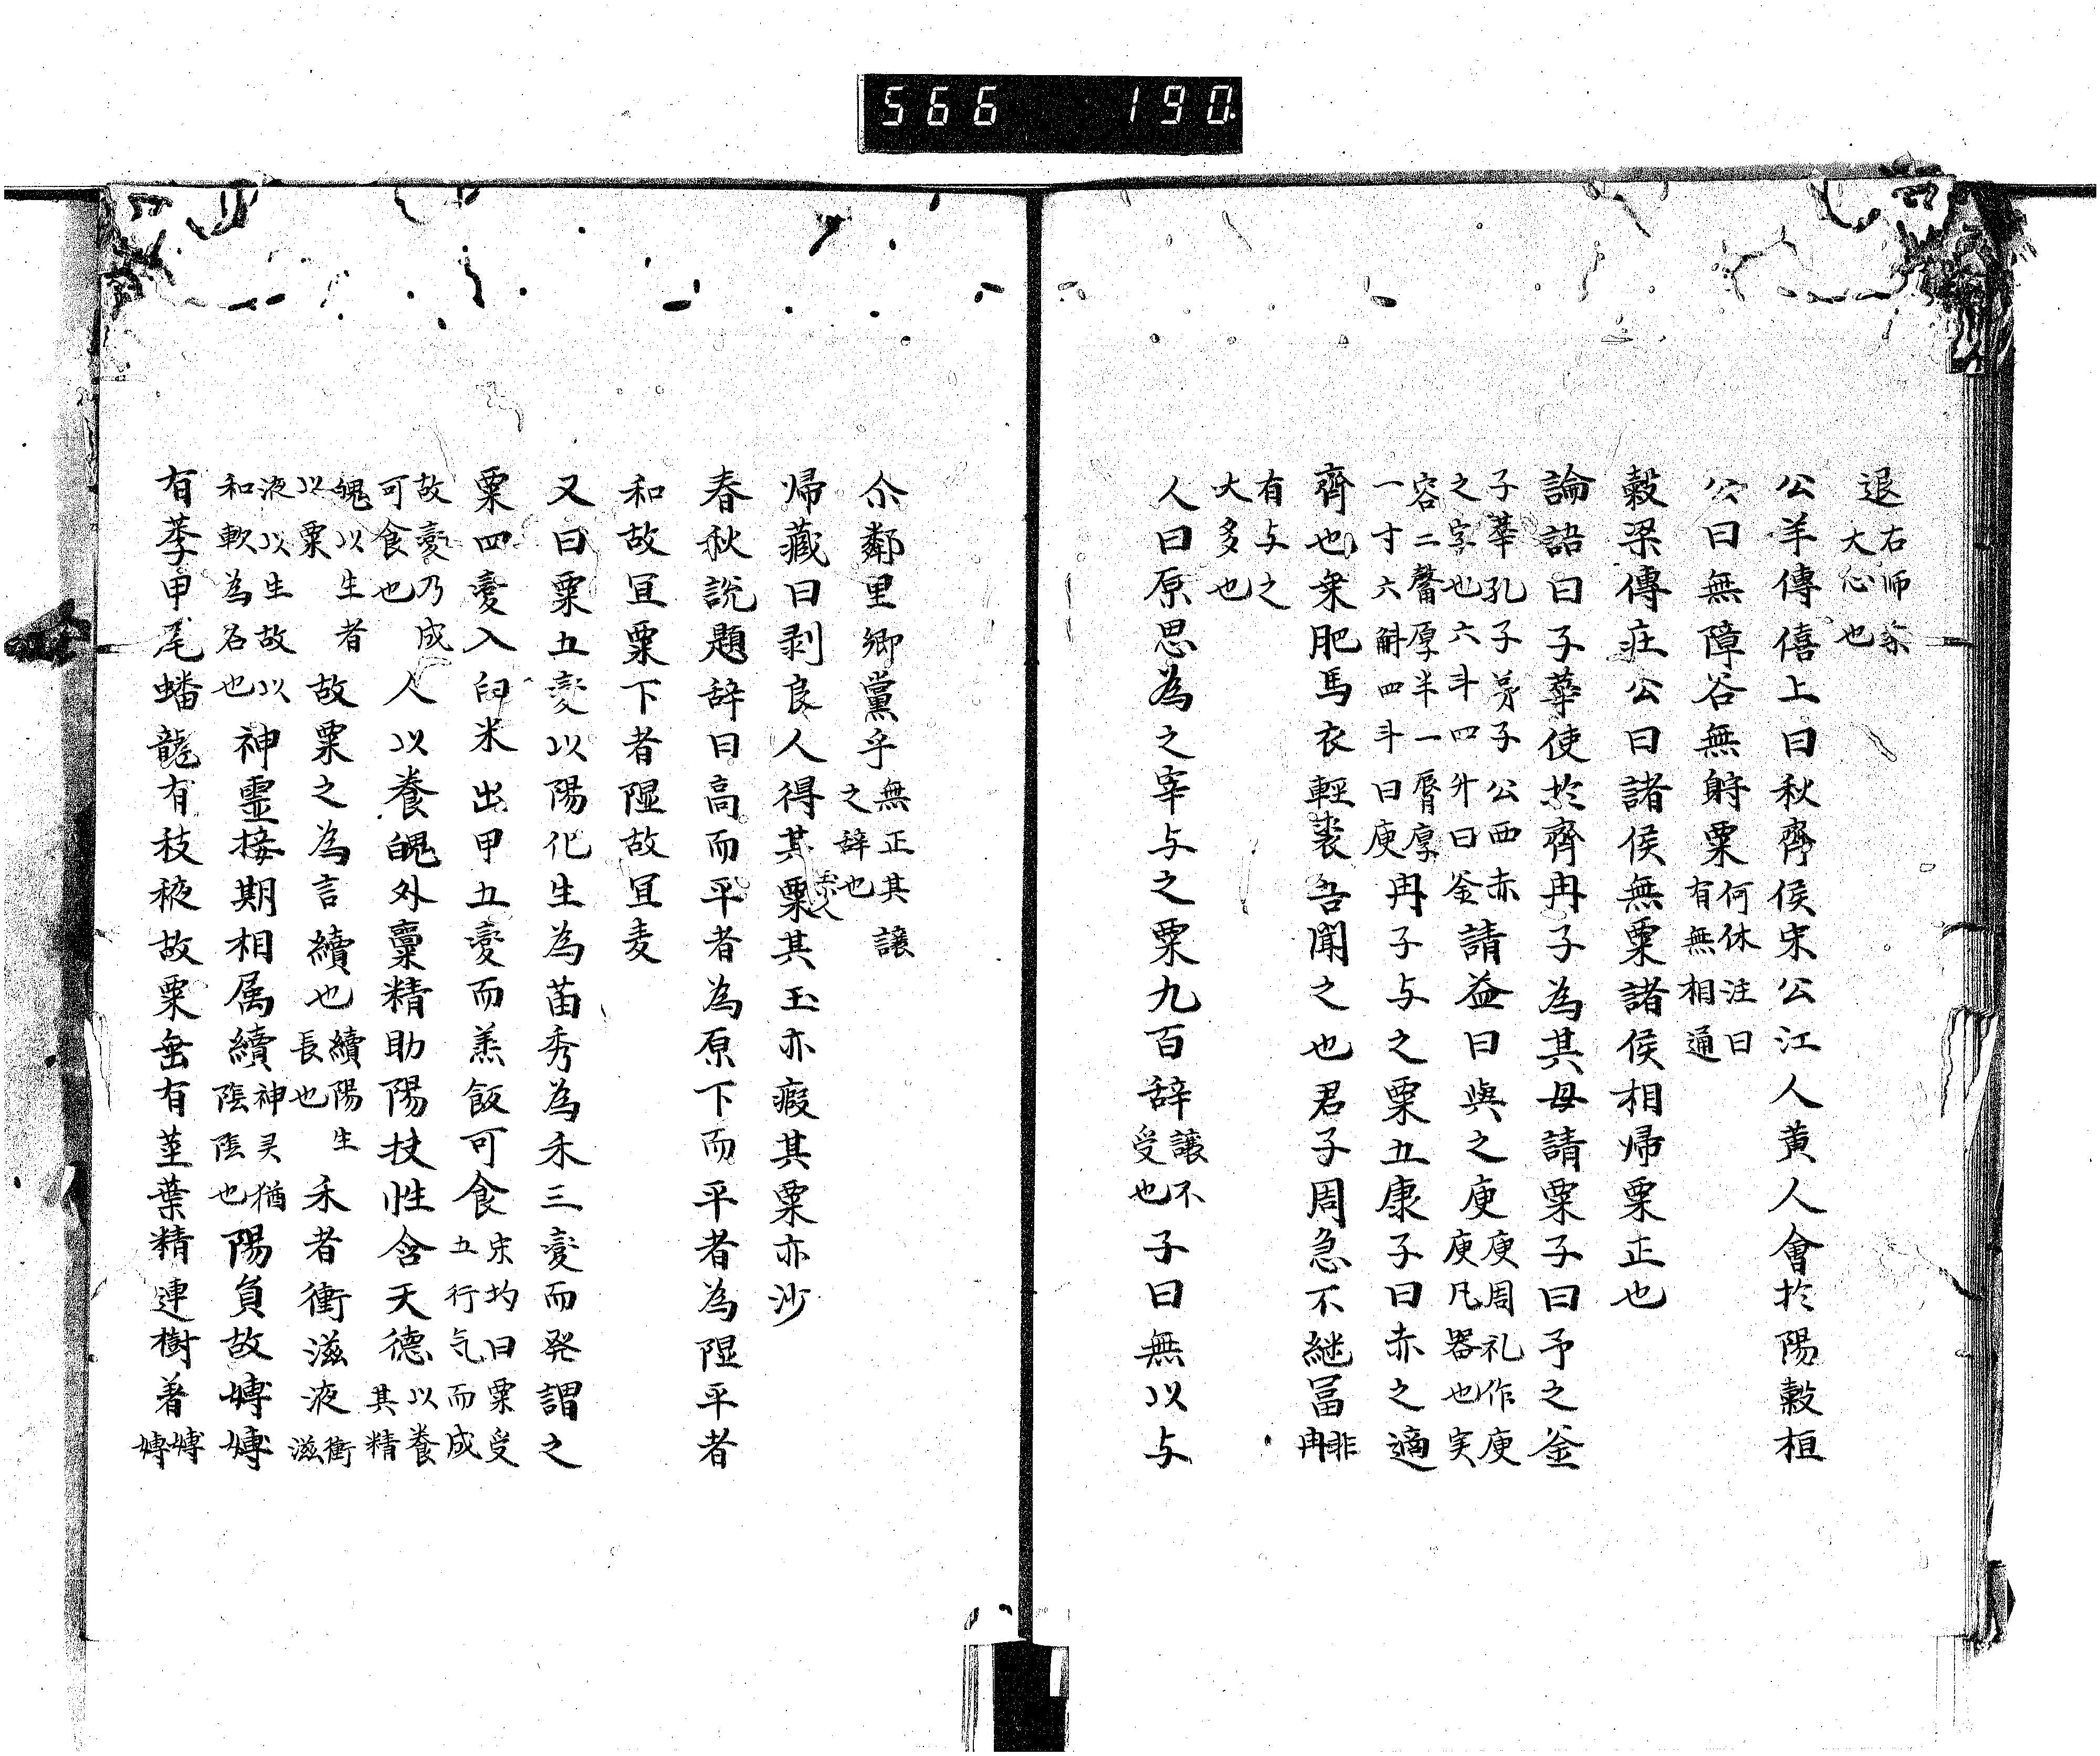 566 190
退右师宗
大心也
公羊傳僖上曰秋齊侯宋公江人黄人會於陽穀桓
公曰無障谷無貯粟何休注曰
有無相通
穀梁傳庄公曰諸侯無粟諸侯相帰粟正也
論語曰子華使於齊冉子為其母請粟子曰予之釜
子華孔子弟子公西赤
之字也六斗四升曰釜請益曰與之庾庾周礼作庾
庾凡器也実
容二鬴厚半一脣厚
一寸六斛四斗曰庾冉子与之粟五康子曰赤之適
齊也乗肥馬衣輕裘吾聞之也君子周急不継冨非
冉
有与之
大多也
人曰原思為之宰与之粟九百辞讓不
受也子曰無以与
尒鄰里鄉黨乎無正其讓
之辞也
帰藏曰剥良人得其粟其玉亦瘕其粟亦沙
春秋說題辞曰高而平者為原下而平者為隰平者
和故宜粟下者隰故宜麦
又曰粟五変以陽化生為苗秀為禾三変而発謂之
粟四変入臼米出甲五変而蒸飯可食宋均曰粟受
五行气而成
故変乃成
可食也人以養魄外稟精助陽扶性含天德以養
其精
魄以生者
以粟故粟之為言續也續陽生
長也禾者衝滋液衝
滋
液以生故以
和軟為名也神霊接期相属續神灵猶
陰陰也陽負故嫥嫥
有莩甲尾蟠龍有枝液故粟缶有莖葉精連樹著嫥
嫥